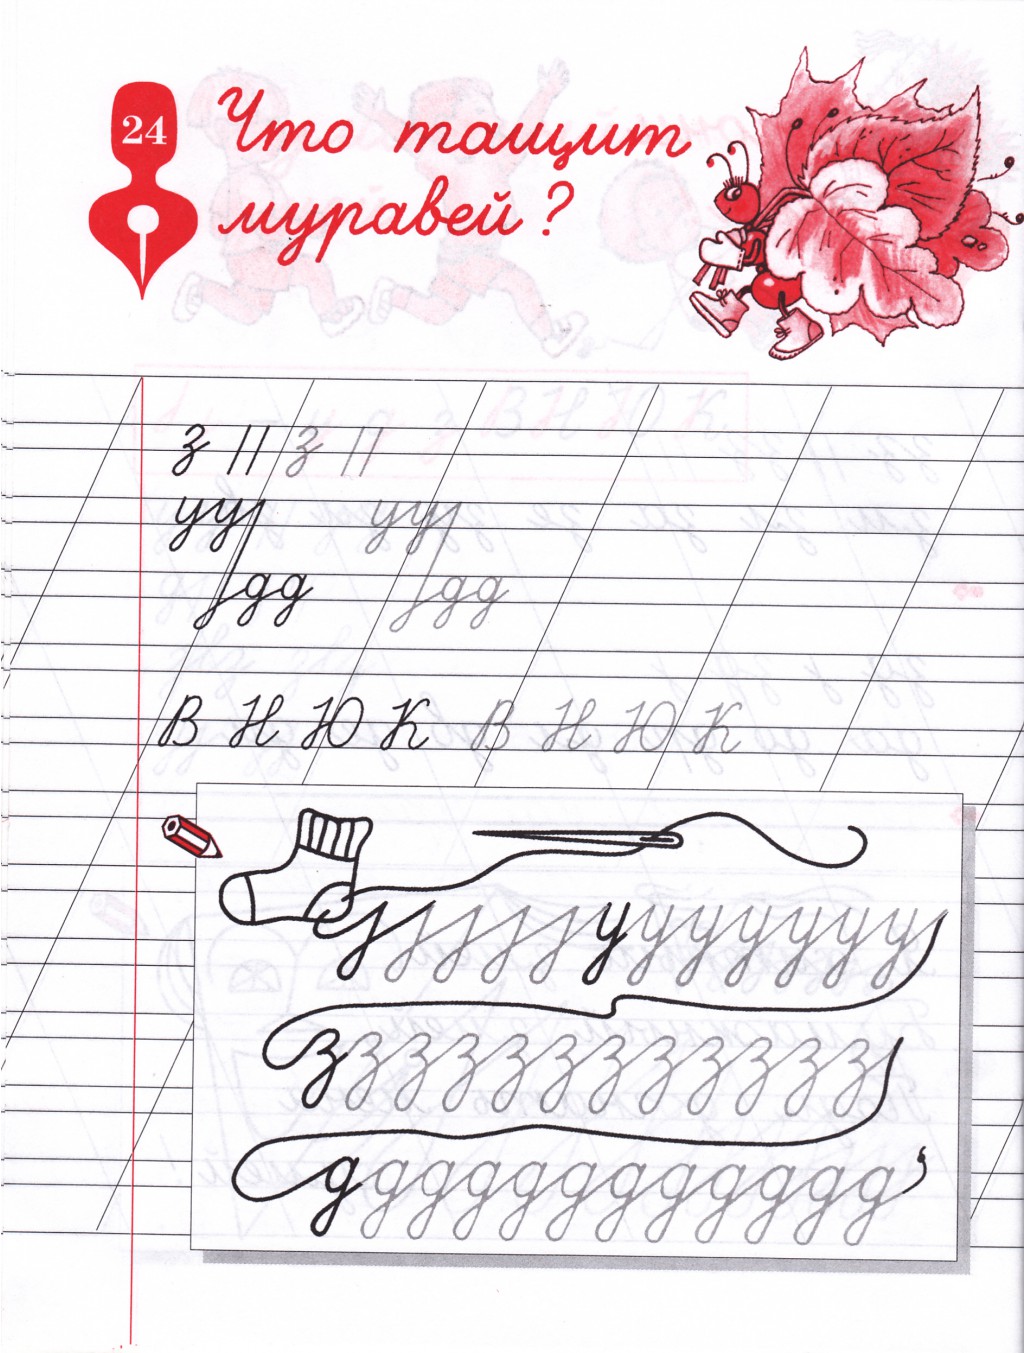 24
Что тащит
муравей?
з // з //
уу уу
дд дд
В Н Ю К В Н Ю К
у у у у у у у
з з з з з з з з з з з з
д д д д д д д д д д д д д